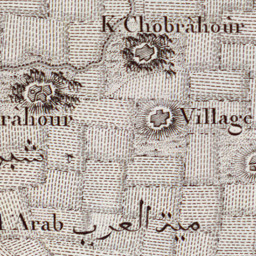 K. Chobrâhoùr
rahour
Village
شبر
l Arab ميت العرب